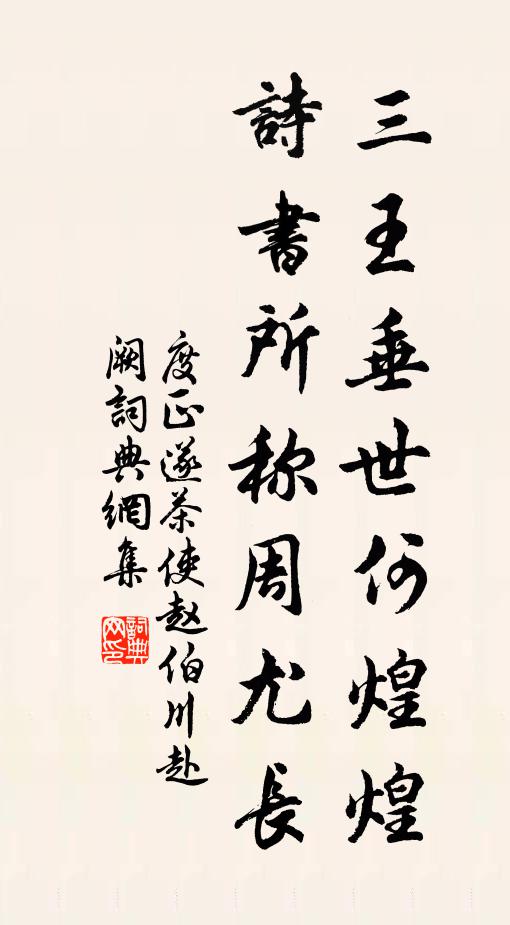 三王垂世何煌煌
詩書所称周尤長
度正送茶使赵伯川赴
阙詞典網集
詞典网印